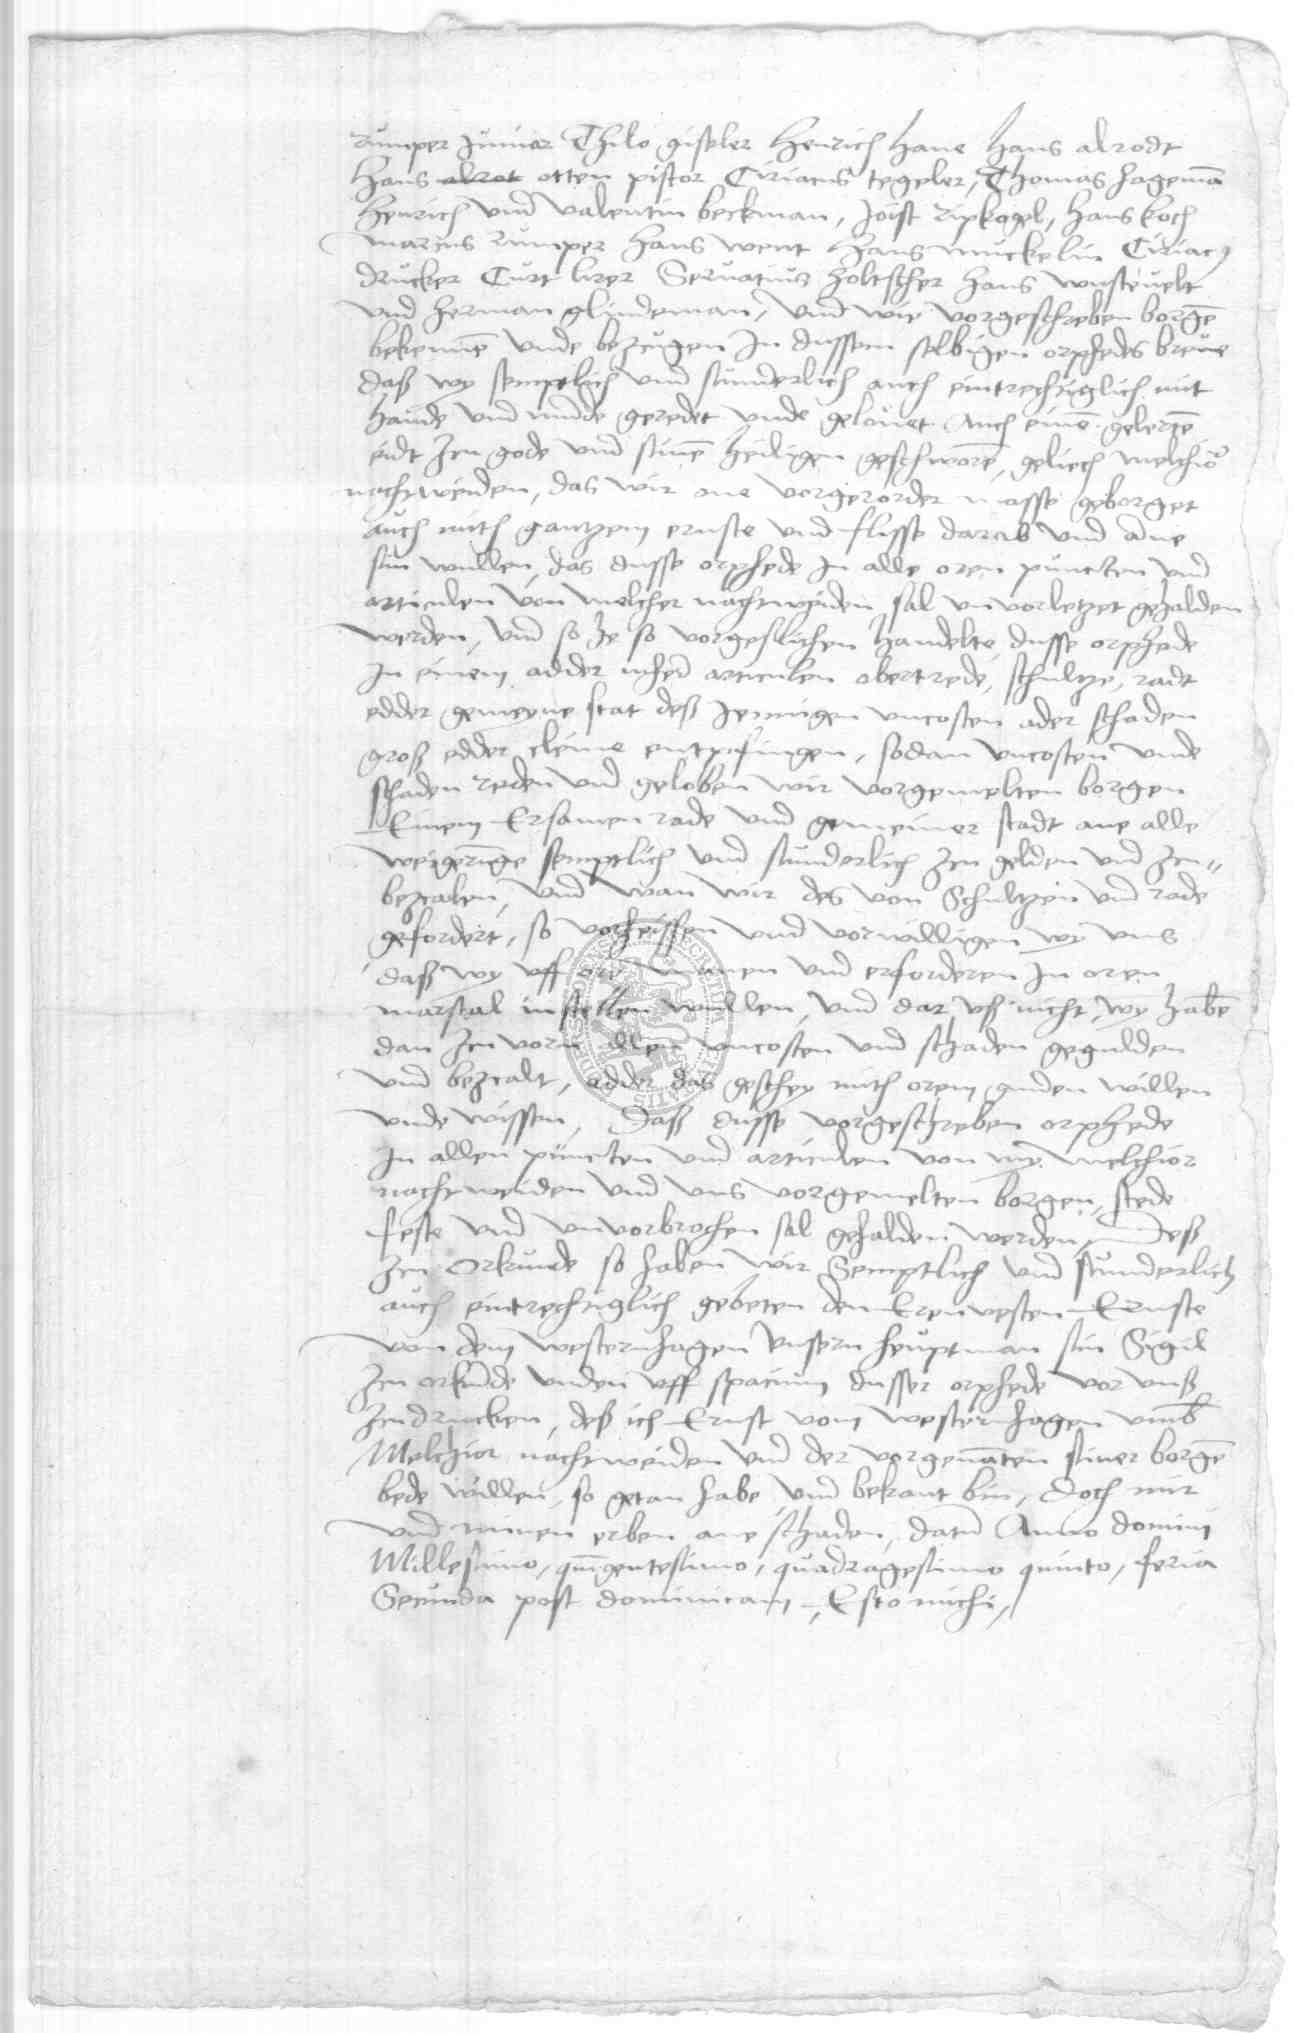 rumper junior Thilo giseler Henrich hane hans alrodt
Hans alrot otten pistor Ciriacus tegeler, Thomas hagemā
Henrich und valentin beckman, joist ripkogel, hans koch
marcus rumper hans went Hans muckelin Ciriac9
drucker Curt lirer Servatius holtscher hans wustevelt
und herman glindeman, und wir vorgeschreben borgē
bekennē unde bezeugen In dussem selbigen orphedes breve
daß wy semptlich und sunderlich auch eintrechtiglich mit
hande und munde geredet unde gelovet Auch einē gelertē
eidt zcu gode und sinē heiligen geschworē, geliech melchior
nachtweiden, das wir ane vorgerorder masse geborget
auch mith gantzem ernste und flisse darab und ane
sin wullen, das dusse orphede in alle oren puncten und
articulen von melcher nachtweiden sal unvorletzet gehalden
werden, und so he so vorgeslichen handelte dusse orphede
In einem adder mher articulen obertrede, schultze, radt
edder gemeyne stat deß jennigen uncosten ader schaden
groß edder cleine entpfingen, sodan uncosten unde
schaden reden und geloben wir vorgemelten borgen
Einem Ersamen rade und gemeiner stadt ane alle
weigerūge semptlich und sunderlich zcu gelden und zcu„
bezcalen, und wan wir des von Schultzen und rade
gefordert, so vorheissen und vorwilligen wy uns
daß wy uff ore manen und erforderen In oren
marstal instellen wullen, und dar uß nicht, wy habē
dan zcuvorn allen uncosten und schaden gegulden
und bezcalt, adder das geschey mith orem guden willen
unde wissen, Daß dusse vorgeschreben orphede
In allen puncten und articulen von my melchior
nachtweiden und uns vorgemelten borgen, stede
feste und unvorbrochen sal gehalden werden, Deß
zcu Orkunde so haben wir Semptlich und sunderlich
auch eintrechtiglich gebeten den Erenvesten Ernste
von dem westernhagen unsern heuptman sin Sigil
zcu orkūde unden uff spacium dusser orphede vor unß
zcudrucken, deß ich Ernst vom westernhagen umb
Melchior nachtweiden und der vorgenāten siner borgē
bede willen, so getan habe, und bekant bin, doch mir
und minen erben ane schaden, datū Anno domini
Millesimo, quīgentesimo, quadragesimo quinto, feria
Secunda post dominicam, Esto michi,